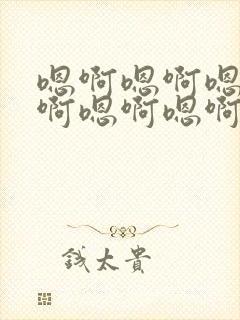 嗯啊嗯啊嗯
啊嗯啊嗯啊
钱太贵